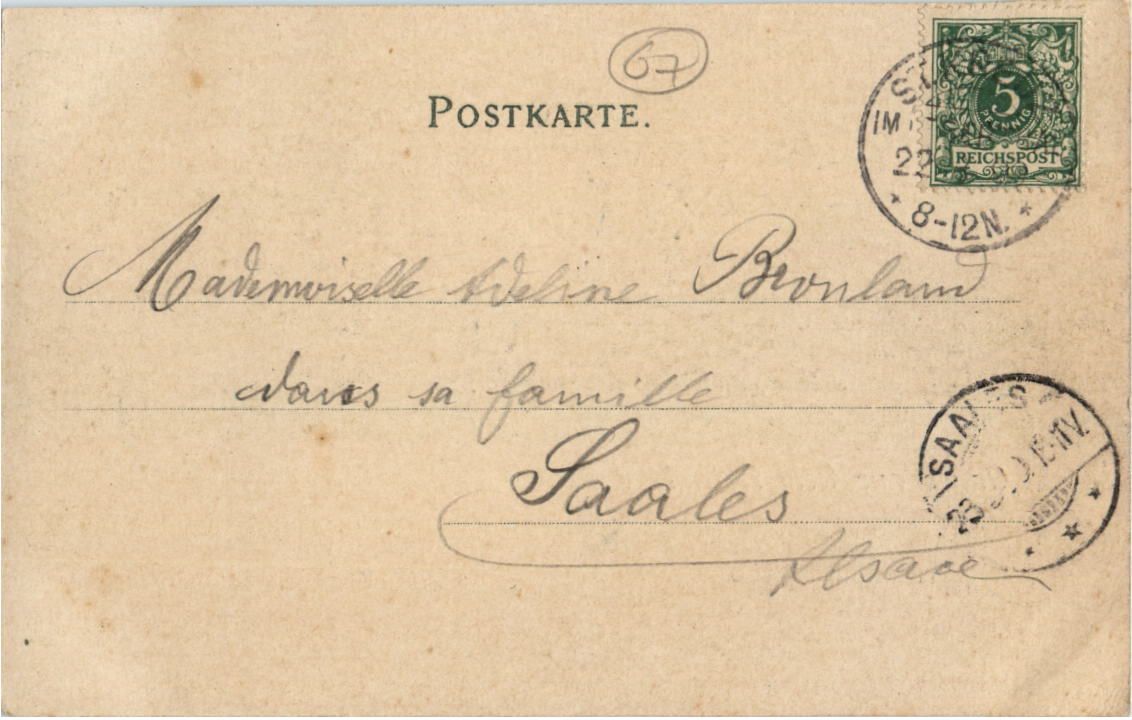 67
POSTKARTE.
5
PFENNIG
REICHSPOST
IM
22
* 8-12N. *
Mademoiselle Adeline
dans sa famille
SAALES
Saales
Alsace